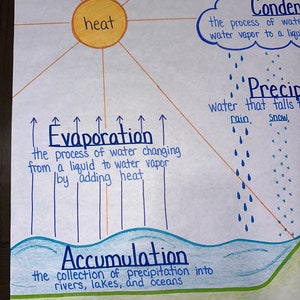 heat
Conden
the process of wate
water vapor to a liqu
Precip
water that falls
rain, snow,
Evaporation
the process of water changing
from a liquid to water vapor
by adding heat
Accumulation
the collection of precipitation into
rivers, lakes, and oceans